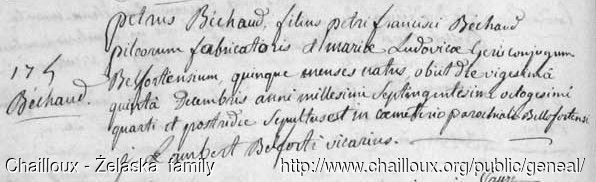 petrus Béchaud, filius petri francisci Béchaud
pileorum fabricatoris & mariæ Ludovicæ Geris conjugum
175
Béchaud.
Belfortensium, quinque menses natus, obiit die vigesimâ
quintâ Decembris anni millesimi septingentesimi octogesimi
quarti et postridie sepultus est in cœmeterio parochiali Belfortensi
Lambert Belforti vicarius.
Chailloux - Želaska family http://www.chailloux.org/public/geneal/